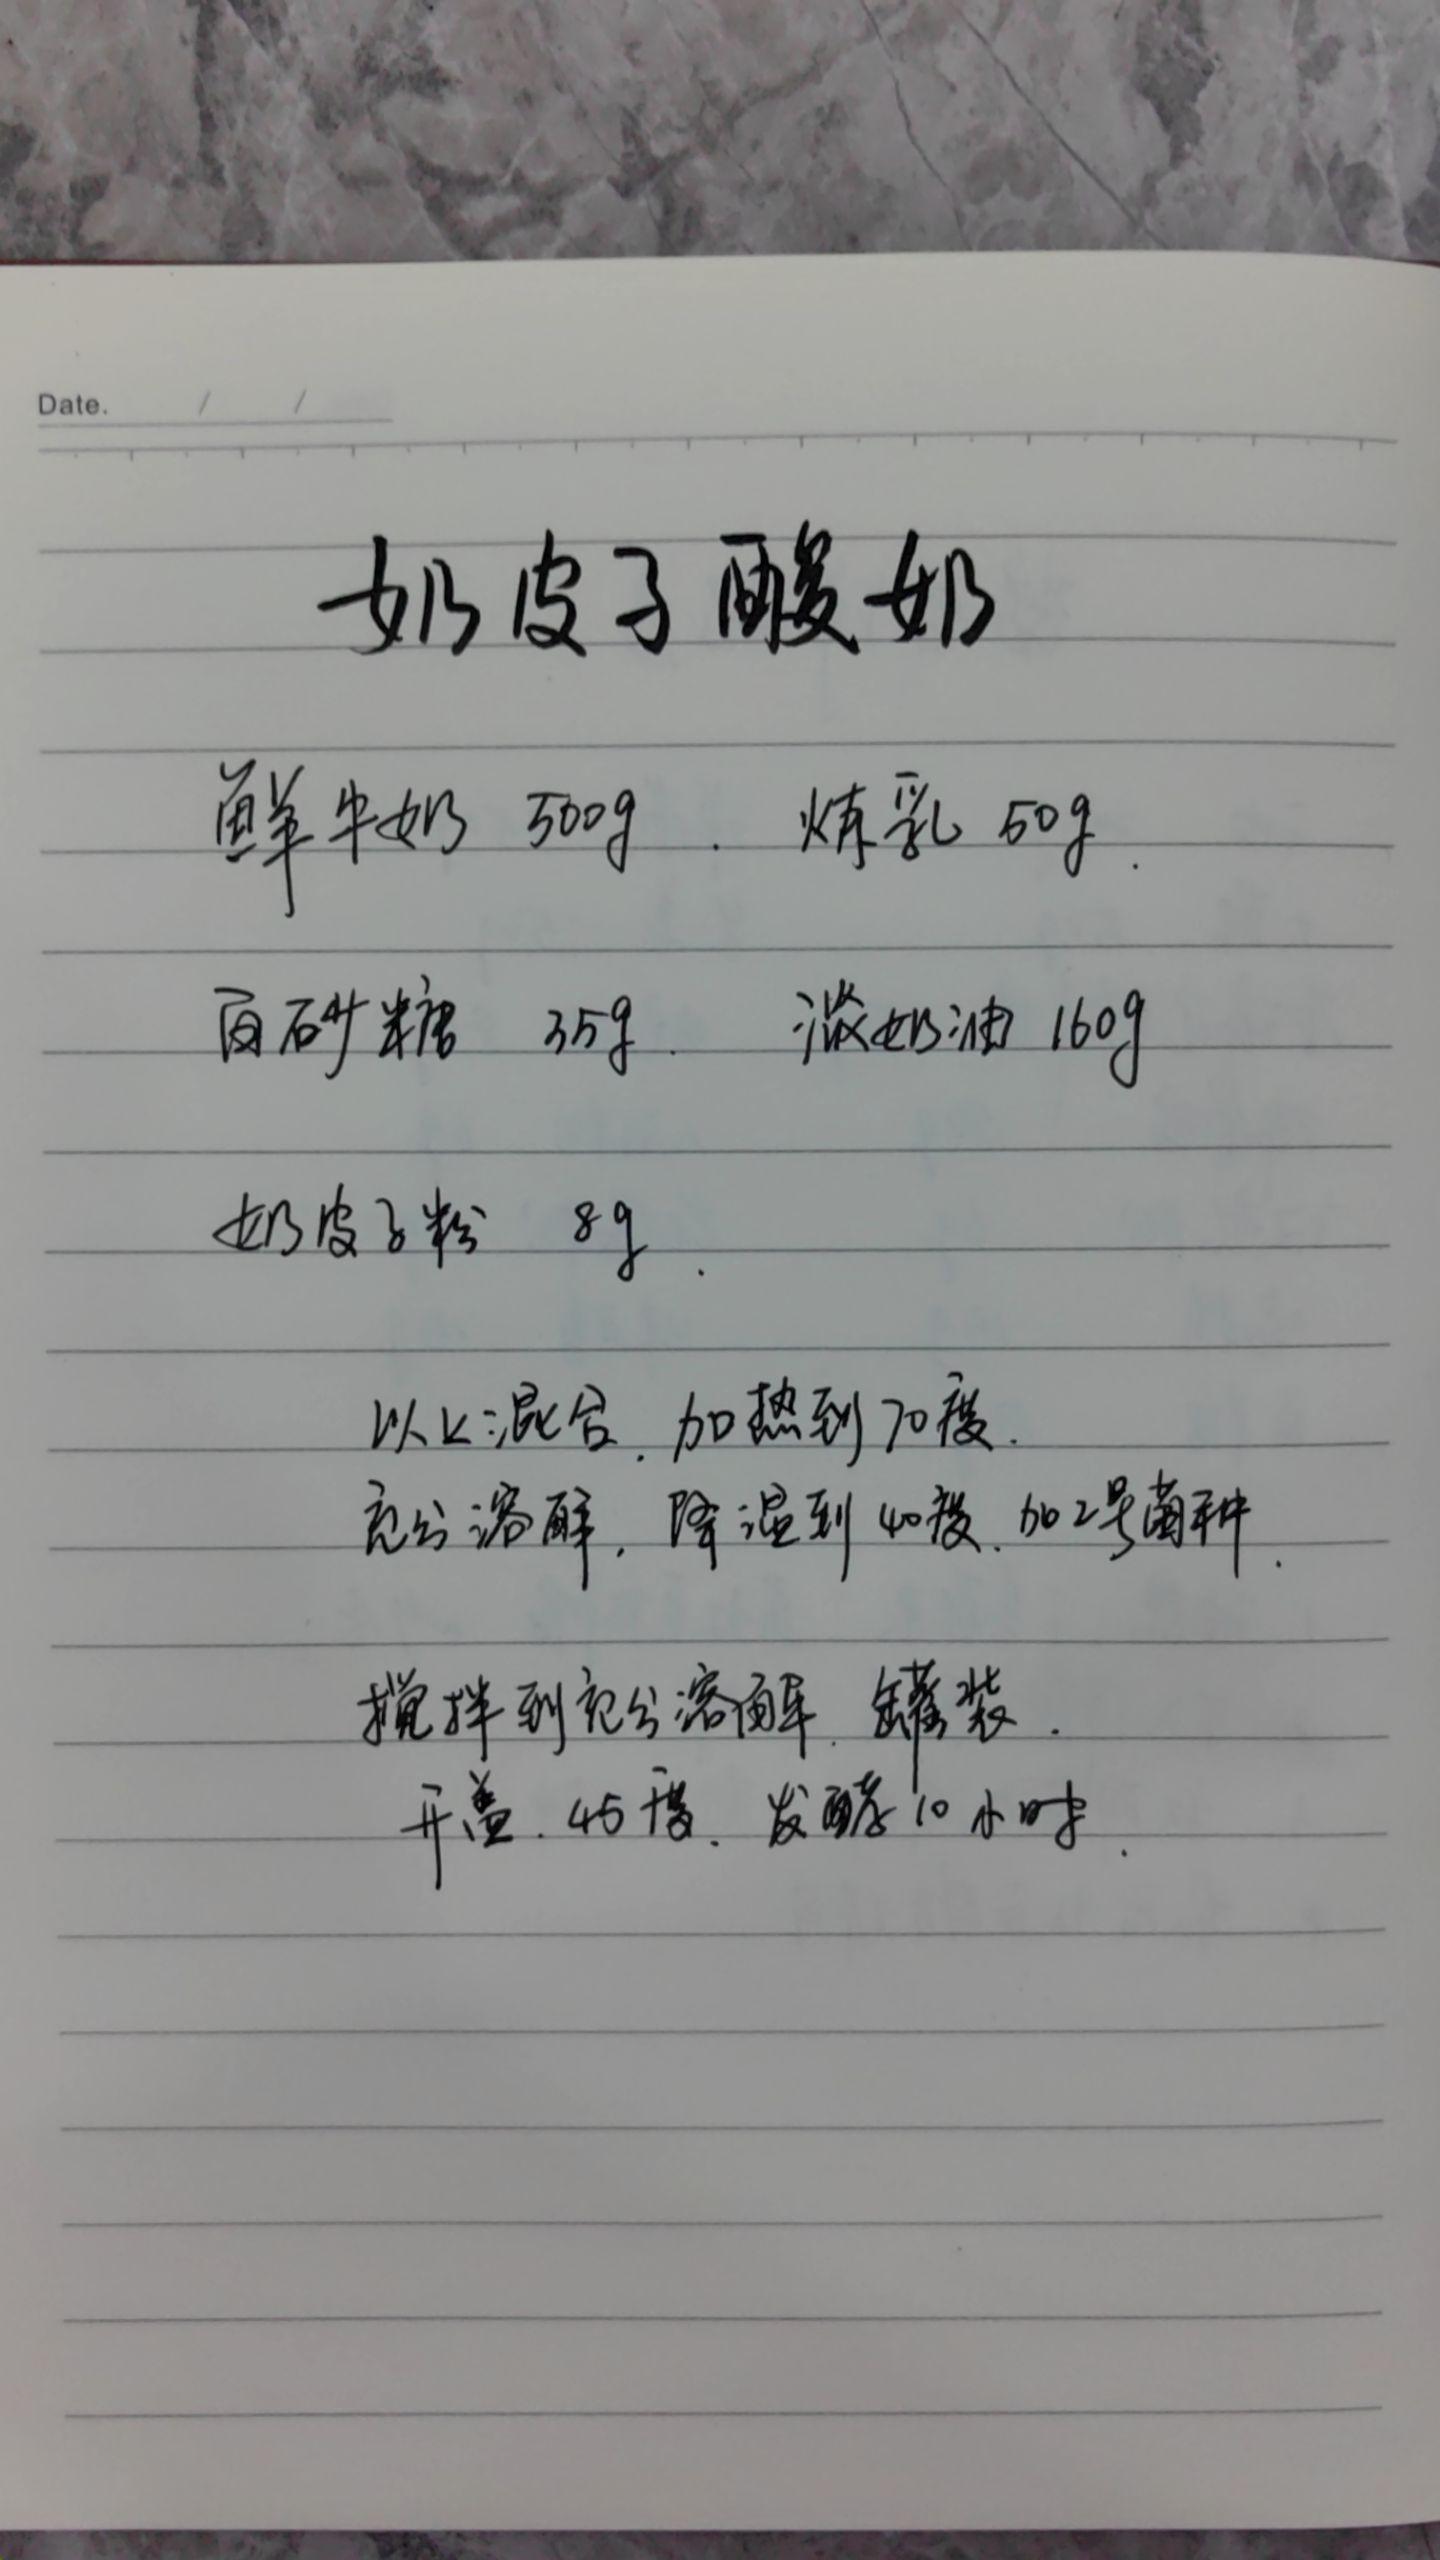 Date. / /
奶皮子酸奶
鲜牛奶 500g. 炼乳 50g.
白砂糖 35g. 淡奶油 160g
奶皮子粉 8g.
以上混合.加热到70度.
充分溶解.降温到40度.加2号菌种.
搅拌到充分溶解.罐装.
开盖.45度.发酵10小时.